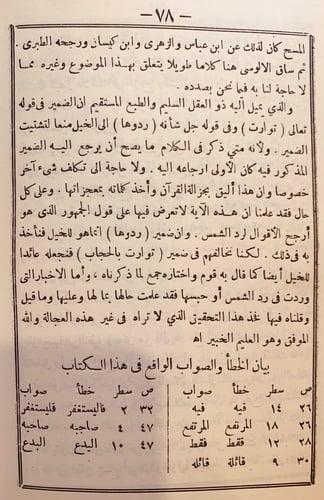 — ٧٨ —
المسح كان لذلك عن ابن عباس والزهرى وابن كيسان ورجحه الطبرى .
ثم ساق الالوسى هنا كلاما طويلا يتعلق بهذا الموضوع وغيره مما
لا حاجة لنا به فيما نحن بصدده .
والذي يميل اليه ذو العقل السليم والطبع المستقيم ان الضمير فى قوله
تعالى ( توارت ) وفى قوله جل شأنه ( ردوها ) الى الخيل منعا لتشتيت
الضمير . ولأنه متي ذكر فى الكلام ما يصح أن يرجع اليه الضمير
المذكور فيه كان الأولى ارجاعه اليه . ولا حاجة الى تكلف شىء آخر
خصوصا وان هذا أليق بجزالة القرآن وأخذ كلماته بمعجزاتها . وعلى كل
حال فقد علمنا ان هذه الآية لا تعرض فيها على قول الجمهور الذى هو
أرجح الأقوال لرد الشمس . وان ضمير ( ردوها ) انما هو للخيل فنأخذ
به فى ذلك . لكنا نخالفهم فى ضمير ( توارت بالحجاب ) فنجعله عائدا
للخيل أيضا كما قال به قوم واختاره جمع لما ذكرناه ، وأما الاخبار التى
وردت فى رد الشمس أو حبسها فقد علمت حالها بما لها وعليها وما قيل
وقلناه فيها فخذ هذا التحقيق الذي لا تراه فى غير هذه العجالة والله
الموفق وهو العليم الخبير اه
بيان الخطأ والصواب الواقع فى هذا الكتاب
ص سطر خطأ صواب ص سطر خطأ صواب
٢٦ ١٤ فيه فيه ٣٢ ٢ فاليستغفر فليستغفر
٢٦ ١٨ المرتفع المرتفع ٤٧ ٤ صاجبه صاحبه
٢٨ ١٢ فقط فقط ٤٧ ١٠ اليدع البدع
٣٠ ٩ قائلة قائله